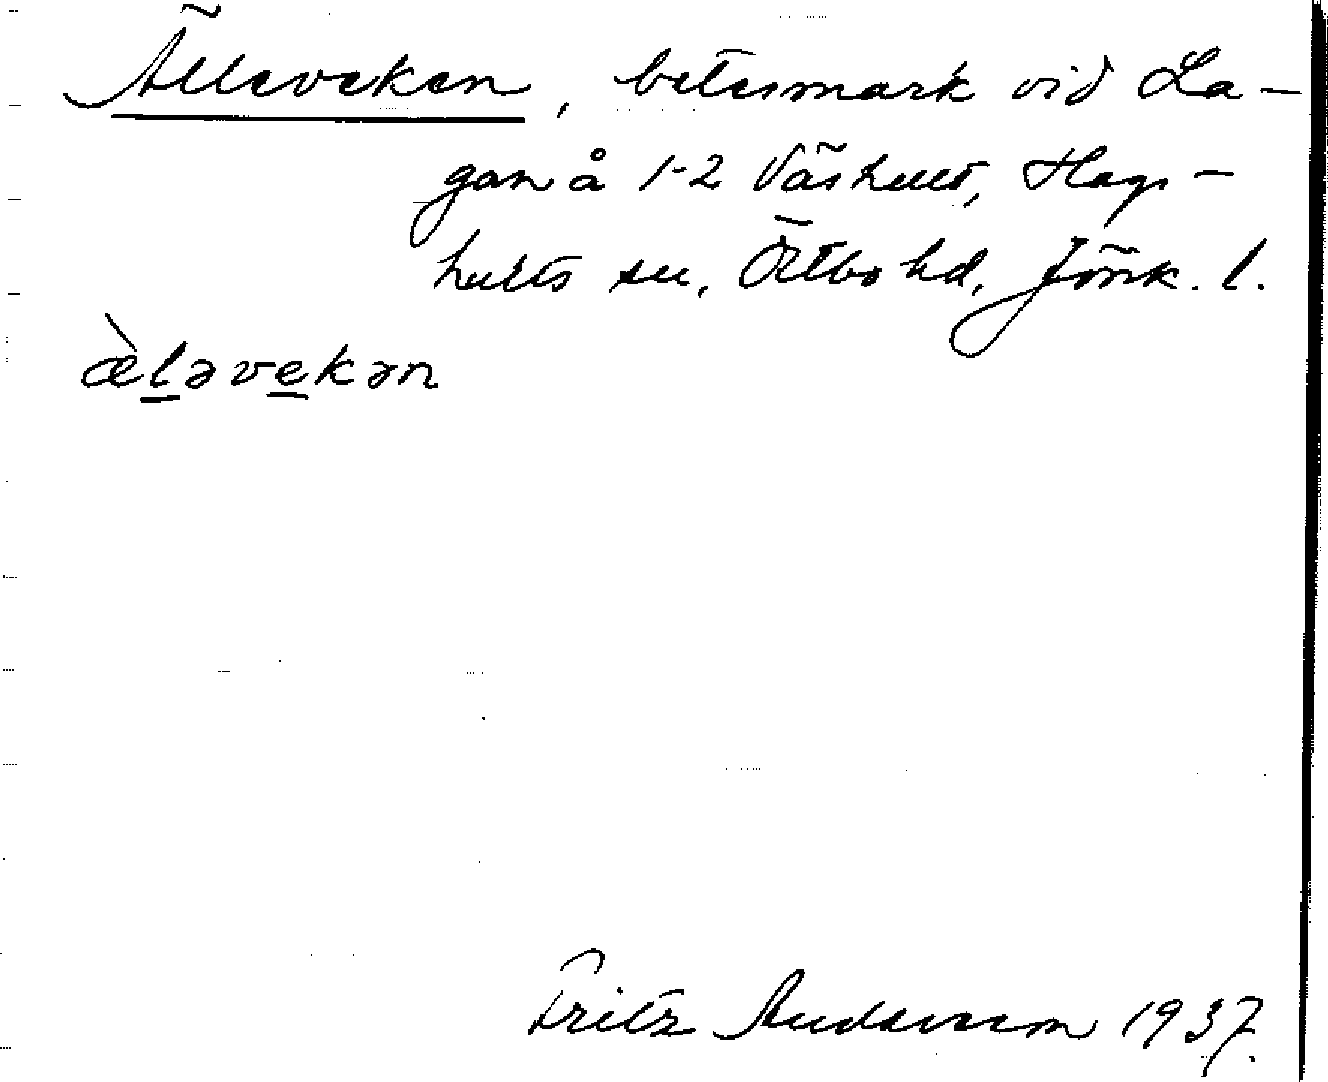 Älleveken, betesmark vid La-
gan å 1-2 Våshult, Hags-
hults sn, Östbo hd, Jönk. l.
æ̀ləvekən
Fritz Andersson 1937.